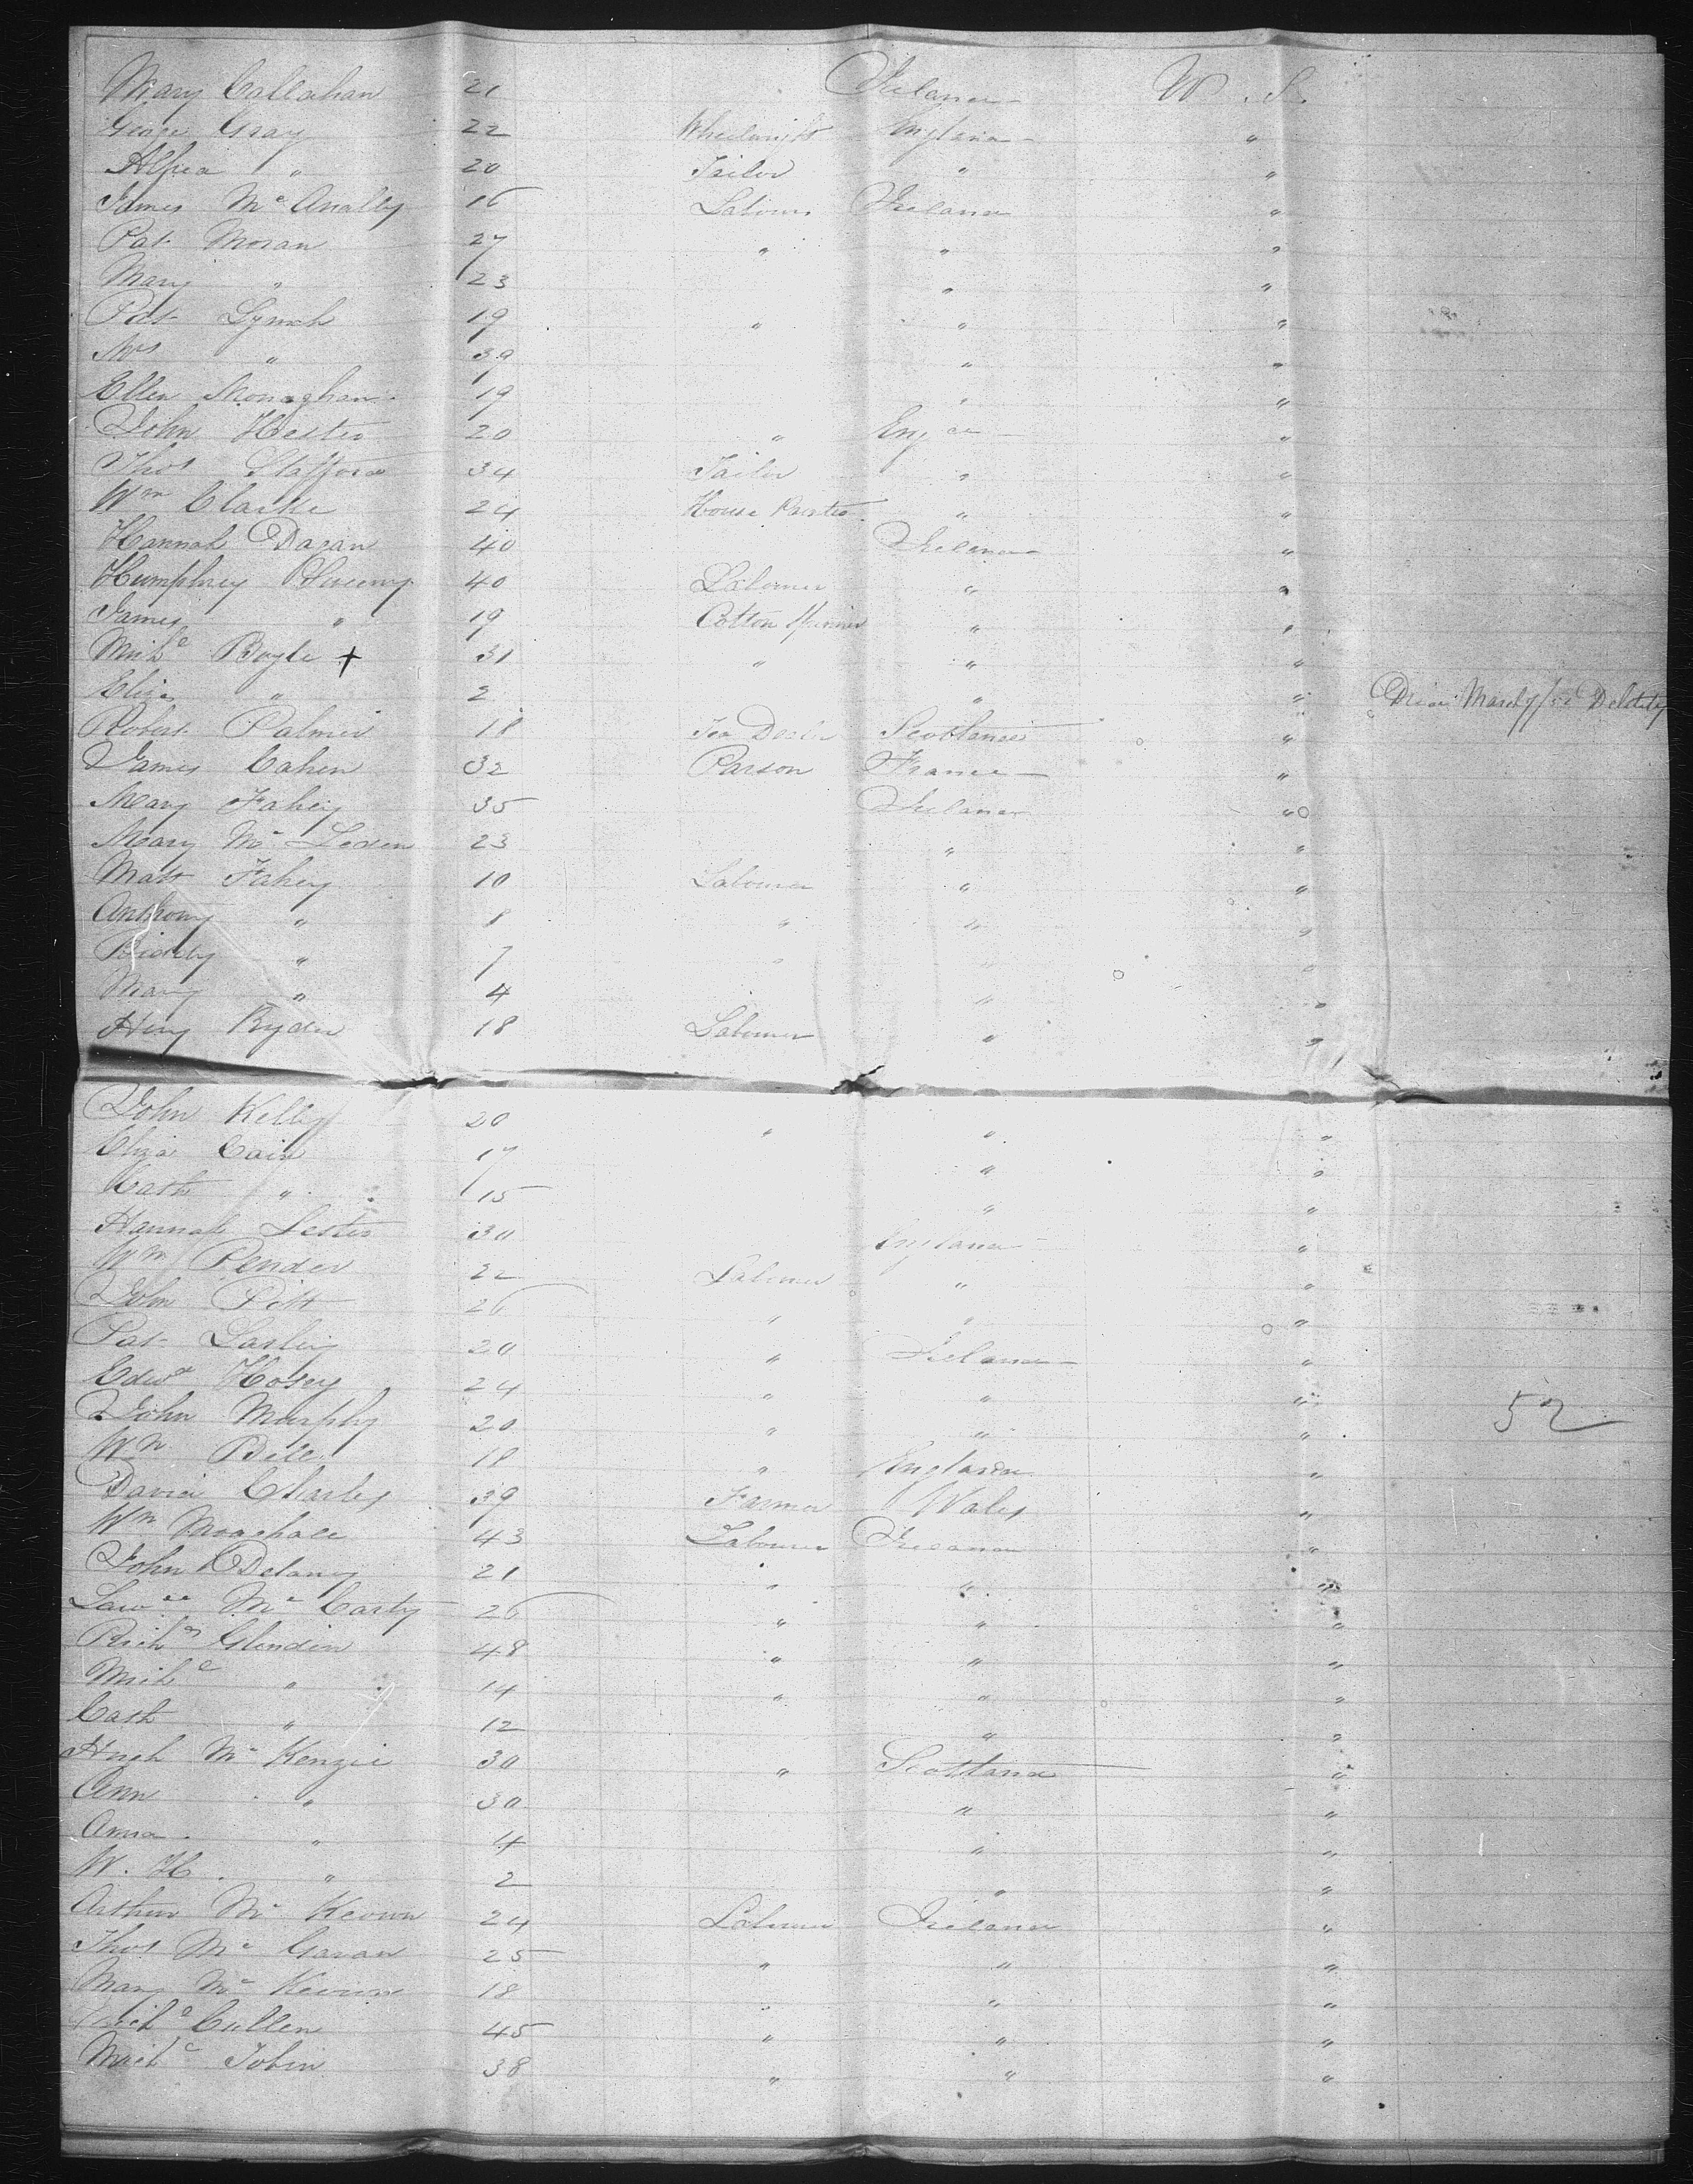 Mary Callahan 21 Ireland U.S.
George Gray 22 Wheelwright England "
Alfred " 20 Tailor " "
James Mc Anally 16 Labour Ireland "
Pat Moran 27 " " "
Mary " 23 " "
Pat Lynch 19 " " "
Mrs " 39 " "
Ellen Monaghan 19 " "
John Hester 20 " Engd "
Thos Stafford 34 Tailor " "
Wm Clarke 24 House Painter " "
Hannah 40 Ireland "
Humphrey Sweeny 40 Labourer " "
James " 19 Cotton Spinner " "
Michl Boyle + 31 " " "
Eliza " 2 " " Died March
Robert Palmer 18 Tea Dealer Scotland "
James Cahen 32 Parson France "
Mary Fahey 35 Ireland "
Mary Mc 23 " "
Matt Fahey 10 Labourer " "
Anthony " 8 " " "
Biddy " 7 " " "
Mary " 4 " "
Heny Ryder 18 Labourer " "
John Kelly 20 " " "
Eliza Cain 17 " "
Cath " 15 " "
Hannah Lester 30 England "
Wm Pender 22 Labourer " "
John Pitt 26 " " "
Pat 20 " Ireland "
Edwd Hosey 24 " " "
John Murphy 20 " " "
Wm Bell 18 " England "
David Charles 39 Farmer Wales "
Wm 43 Labourer Ireland "
John Delany 21 " " "
Lawce Mc Carty 26 " " "
Richd Glendin 48 " " "
Michl " 14 " " "
Cath " 12 " "
Hugh Mc Kenzie 30 " Scotland "
Ann " 30 " "
Anna " 4 " "
W. H. " 2 " "
Arthur Mc Keown 24 Labourer Ireland "
Thos Mc Gavan 25 " " "
Mary Mc Keown 18 " " "
Michl Cullen 45 " " "
Michl Tobin 38 " " "
52